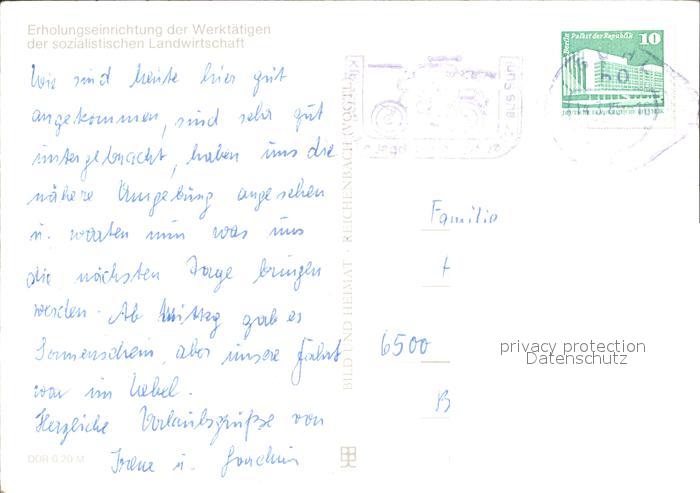 Erholungseinrichtung der Werktätigen
der sozialistischen Landwirtschaft
Wir sind heute hier gut
angekommen, sind sehr gut
untergebracht, haben uns die
nähere Umgebung angesehen
u. warten nun was uns
die nächsten Tage bringen
werden. Ab Mittag gab es
Sonnenschein, aber unsere Fahrt
war im Nebel.
Herzliche Urlaubsgrüße von
Irene u. Joachim
DDR 0,20 M
BILD UND HEIMAT · REICHENBACH (VOGTL)
Berlin Palast der Republik
10
DEUTSCHE DEMOKRATISCHE REPUBLIK
Familie
6500
privacy protection
Datenschutz